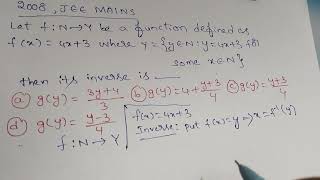 2008, JEE MAINS
Let f: N→Y be a function defined as
f(x) = 4x+3 where Y = {y∈N: y=4x+3, for
some x∈N}
then its inverse is ——
(a) g(y) = 3y+4/3 (b) g(y) = 4+ y+3/4 (c) g(y) = y+3/4
(d) g(y) = y-3/4
f: N→Y
f(x) = 4x+3
Inverse: put f(x)=y ⇒ x = f⁻¹(y)